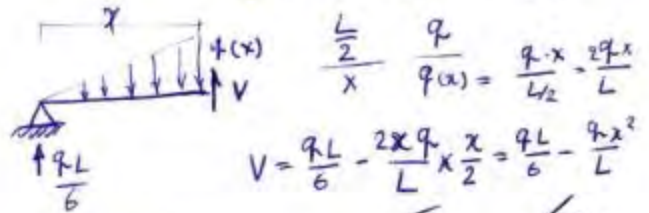 x
q(x)
V
qL/6
L/2 q
x q(x) = q·x / L/2 - 2qx / L
V = qL/6 - 2xq/L × x/2 = qL/6 - qx²/L